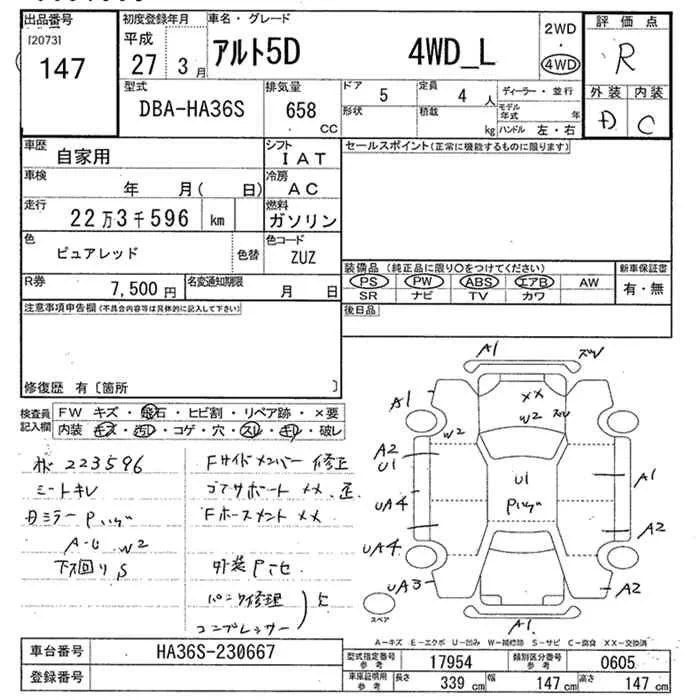 出品番号
[2073]
147
初度登録年月
平成
27 3月
車名・グレード
アルト5D 4WD_L
2WD
・
4WD
評価点
R
外装 内装
D C
型式
DBA-HA36S
排気量
658
CC
ドア
5
定員
4人
ディーラー・並行
形状
積載
kg
モデル年式
年
ハンドル 左・右
車歴
自家用
シフト
IAT
セールスポイント(正常に機能するものに限ります)
車検
年 月( 日)
冷房
AC
走行
22万3千596 km
燃料
ガソリン
色
ピュアレッド
色替
色コード
ZUZ
R券
7,500円
名変通知期限
月 日
装備品(純正品に限り○をつけてください)
PS PW ABS エアB AW
SR ナビ TV カワ
新車保証書
有・無
後日品
注意事項申告欄(不具合内容等は具体的に記入して下さい)
修復歴 有〔箇所 〕
検査員記入欄
FW キズ・飛石・ヒビ割・リペア跡・×要
内装・キズ・汚レ・コゲ・穴・スレ・キレ・破レ
223596
シートキレ
ミラー
A-U W2
下回りS
Fサイドメンバー 修正
コアサポート XX
XX
外装
パンク修理
コンプレッサー
A1
A1
XX
W2
W2
A2
U1
U1
A1
UA4
A2
UA4
UA3
A2
A1
スペア
A-キズ E-エクボ U-凹み W-補修跡 S-サビ C-腐食 XX-交換済
車台番号
HA36S-230667
登録番号
型式指定番号
参考
17954
類別区分番号
参考
0605
車庫証明用
参考
長さ
339 cm
幅
147 cm
高さ
147 cm